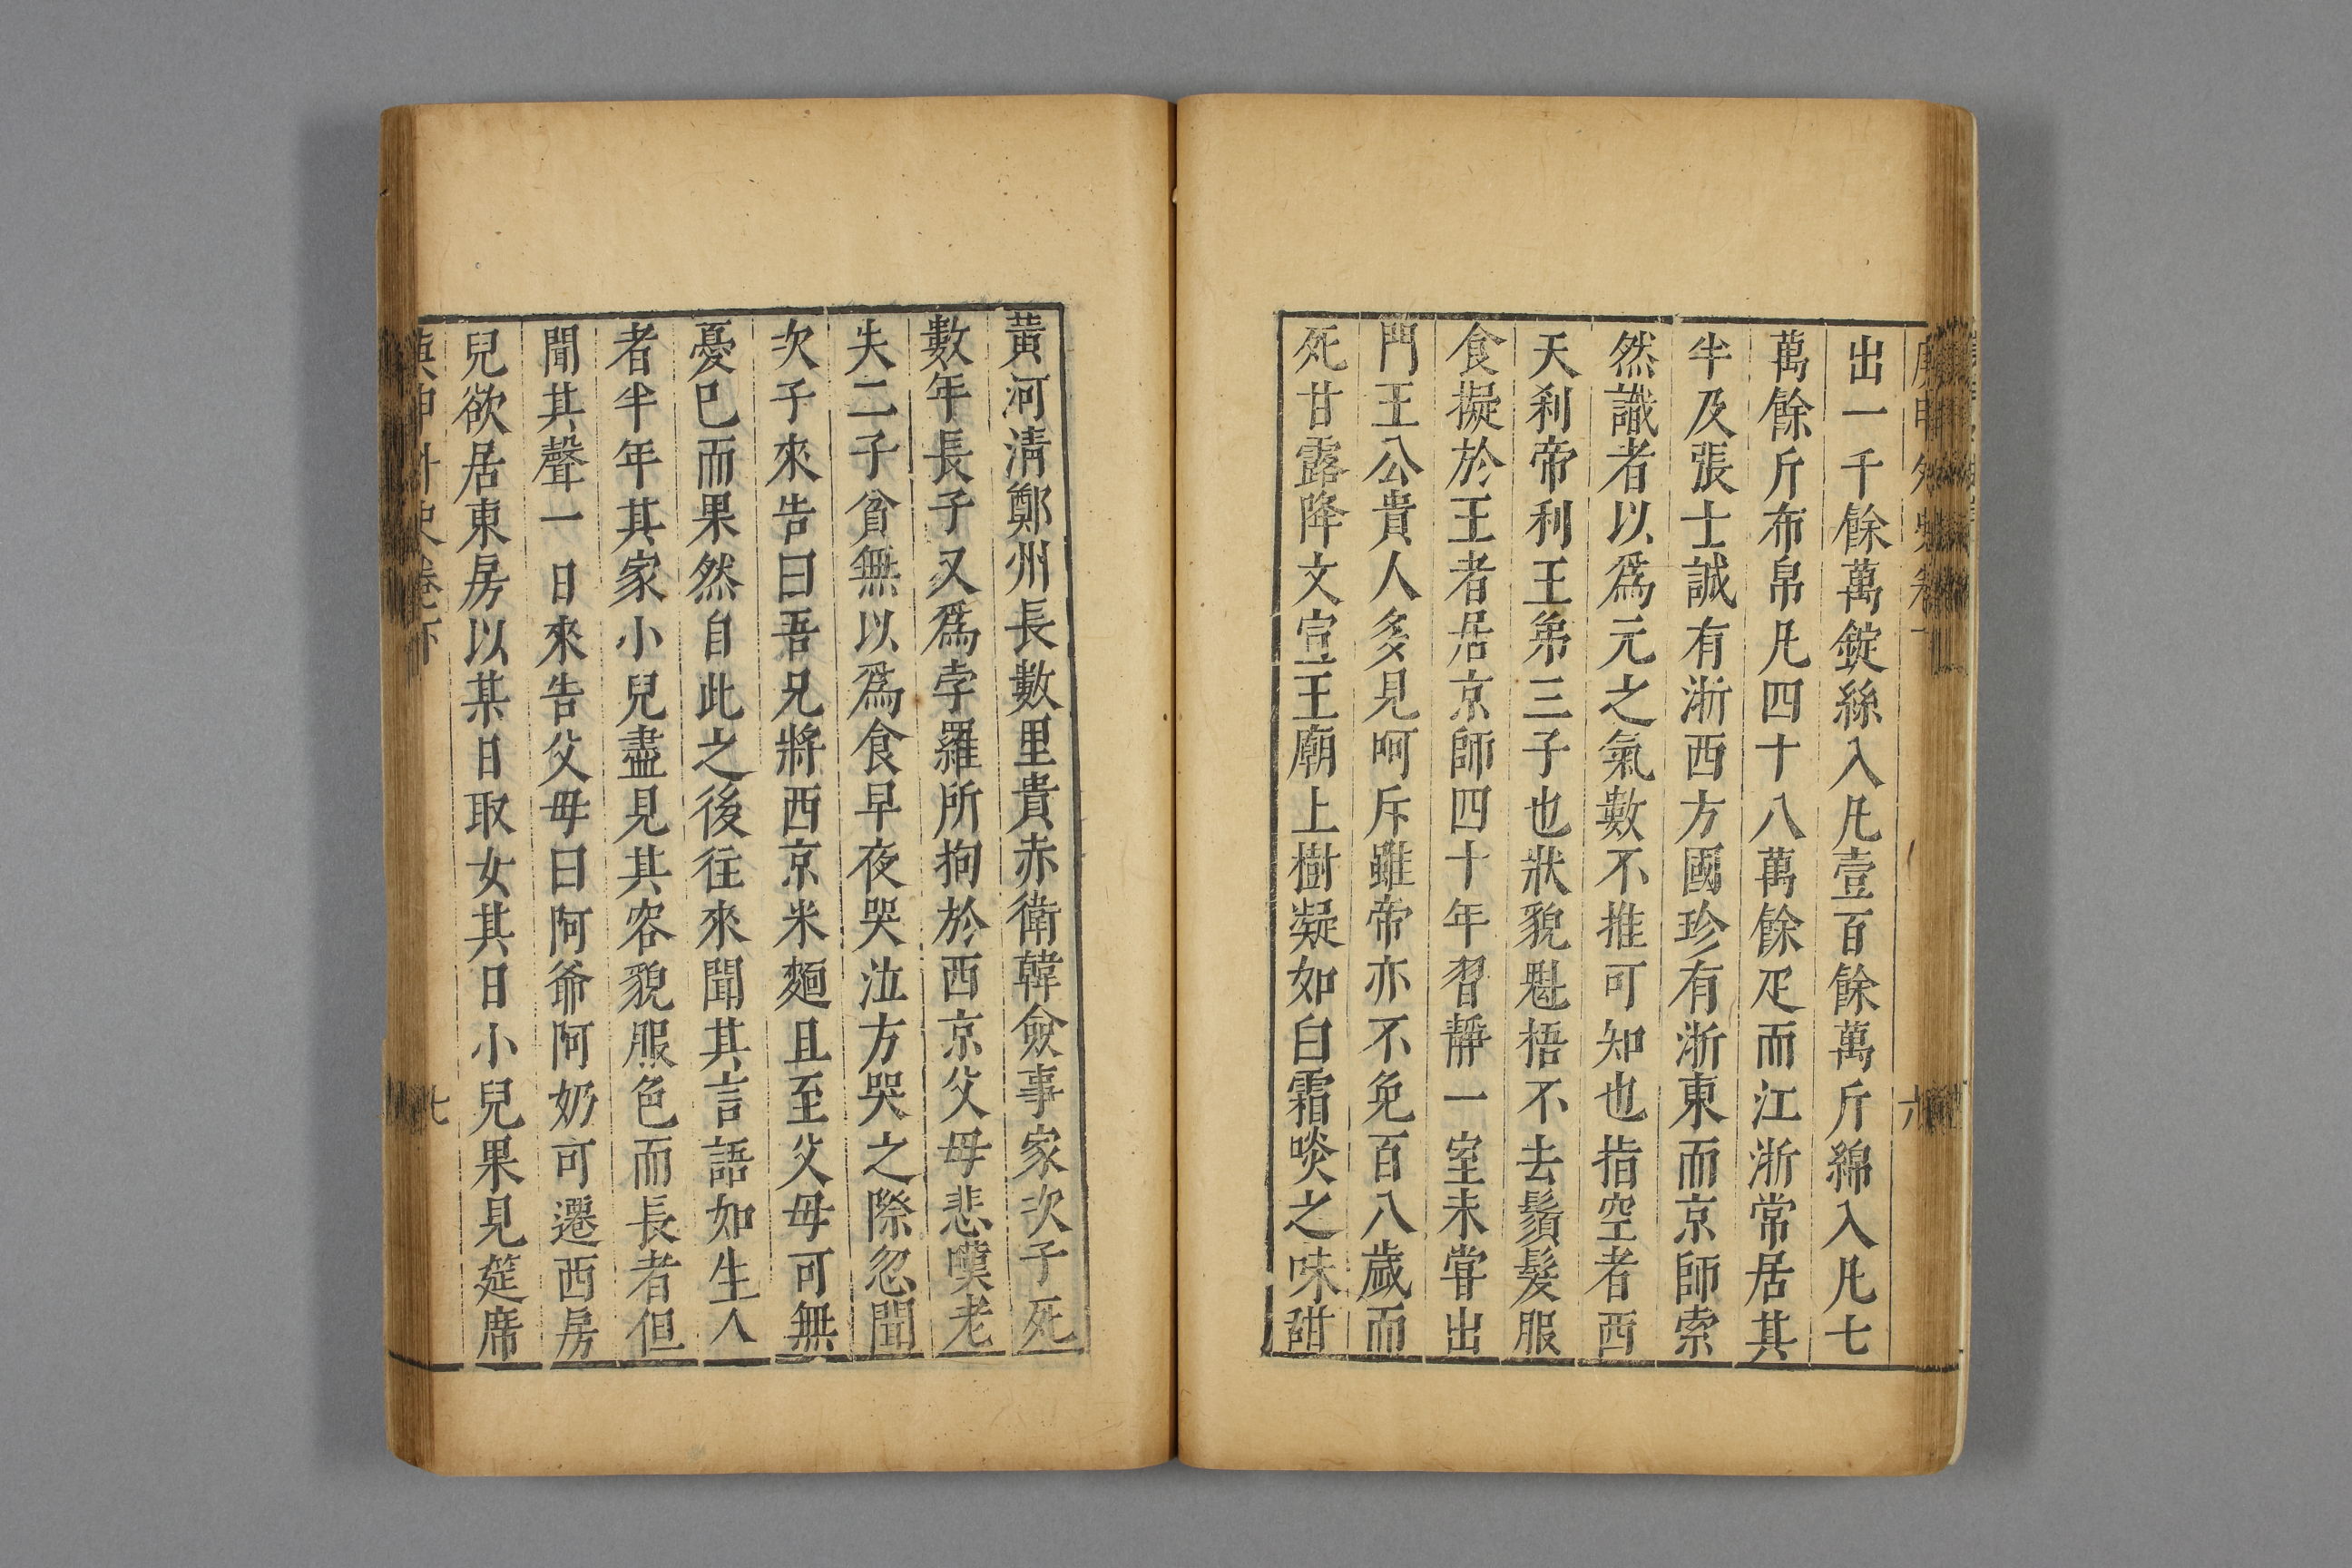 出一千餘萬錠絲入凡壹百餘萬斤綿入凡七
萬餘斤布帛凡四十八萬餘疋而江浙常居其
半及張士誠有浙西方國珍有浙東而京師索
然識者以爲元之氣數不推可知也指空者西
天剎帝利王第三子也狀貌魁梧不去鬚髮服
食擬於王者居京師四十年習靜一室未甞出
門王公貴人多見呵斥雖帝亦不免百八歲而
死甘露降文宣王廟上樹凝如白霜啖之味甜
黃河清鄭州長數里貴赤衛韓僉事家次子死
數年長子又爲孛羅所拘於西京父母悲嘆老
失二子貧無以爲食早夜哭泣方哭之際忽聞
次子來告曰吾兄將西京米麵且至父母可無
憂已而果然自此之後往來聞其言語如生人
者半年其家小兒盡見其容貌服色而長者但
聞其聲一日來告父母曰阿爺阿奶可遷西房
兒欲居東房以某日取女其日小兒果見筵席
庚申外史卷下
七